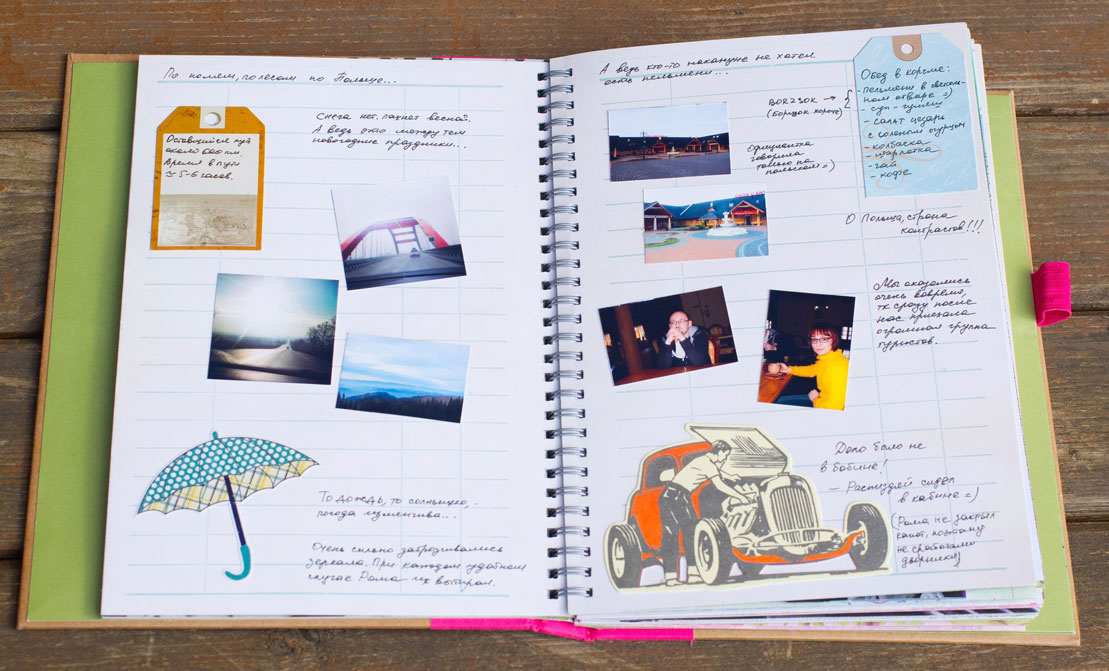 По полям, по лесам по Польше...
Оставшийся путь
около 600 км.
Время в пути
≈ 5-6 часов.
Снега нет. пахнет весной.
А ведь это между тем
новогодние праздники...
То дождь, то солнышко,..
погода изменчива...
Очень сильно забрызгивались
зеркала. При каждом удобном
случае Рома их вытирал.
А ведь кто-то накануне не хотел
есть пельмени...
BORZSOK →
(борщок короче)
Официантка
говорила
только на
польском =)
Обед в корчме:
- пельмени в свеколь-
ном отваре =)
- суп - гуляш
- салат цезарь
с соленым огурцом
- колбаска
- шарлотка
- чай
- кофе
О Польша, страна
контрастов!!!
Мы оказались
очень вовремя,
тк сразу после
нас приехала
огромная группа
туристов.
Дело было не
в бобине!
- Распиздяй сидел
в кабине =)
(Рома не закрыл
капот, поэтому
не сработали
дворники)